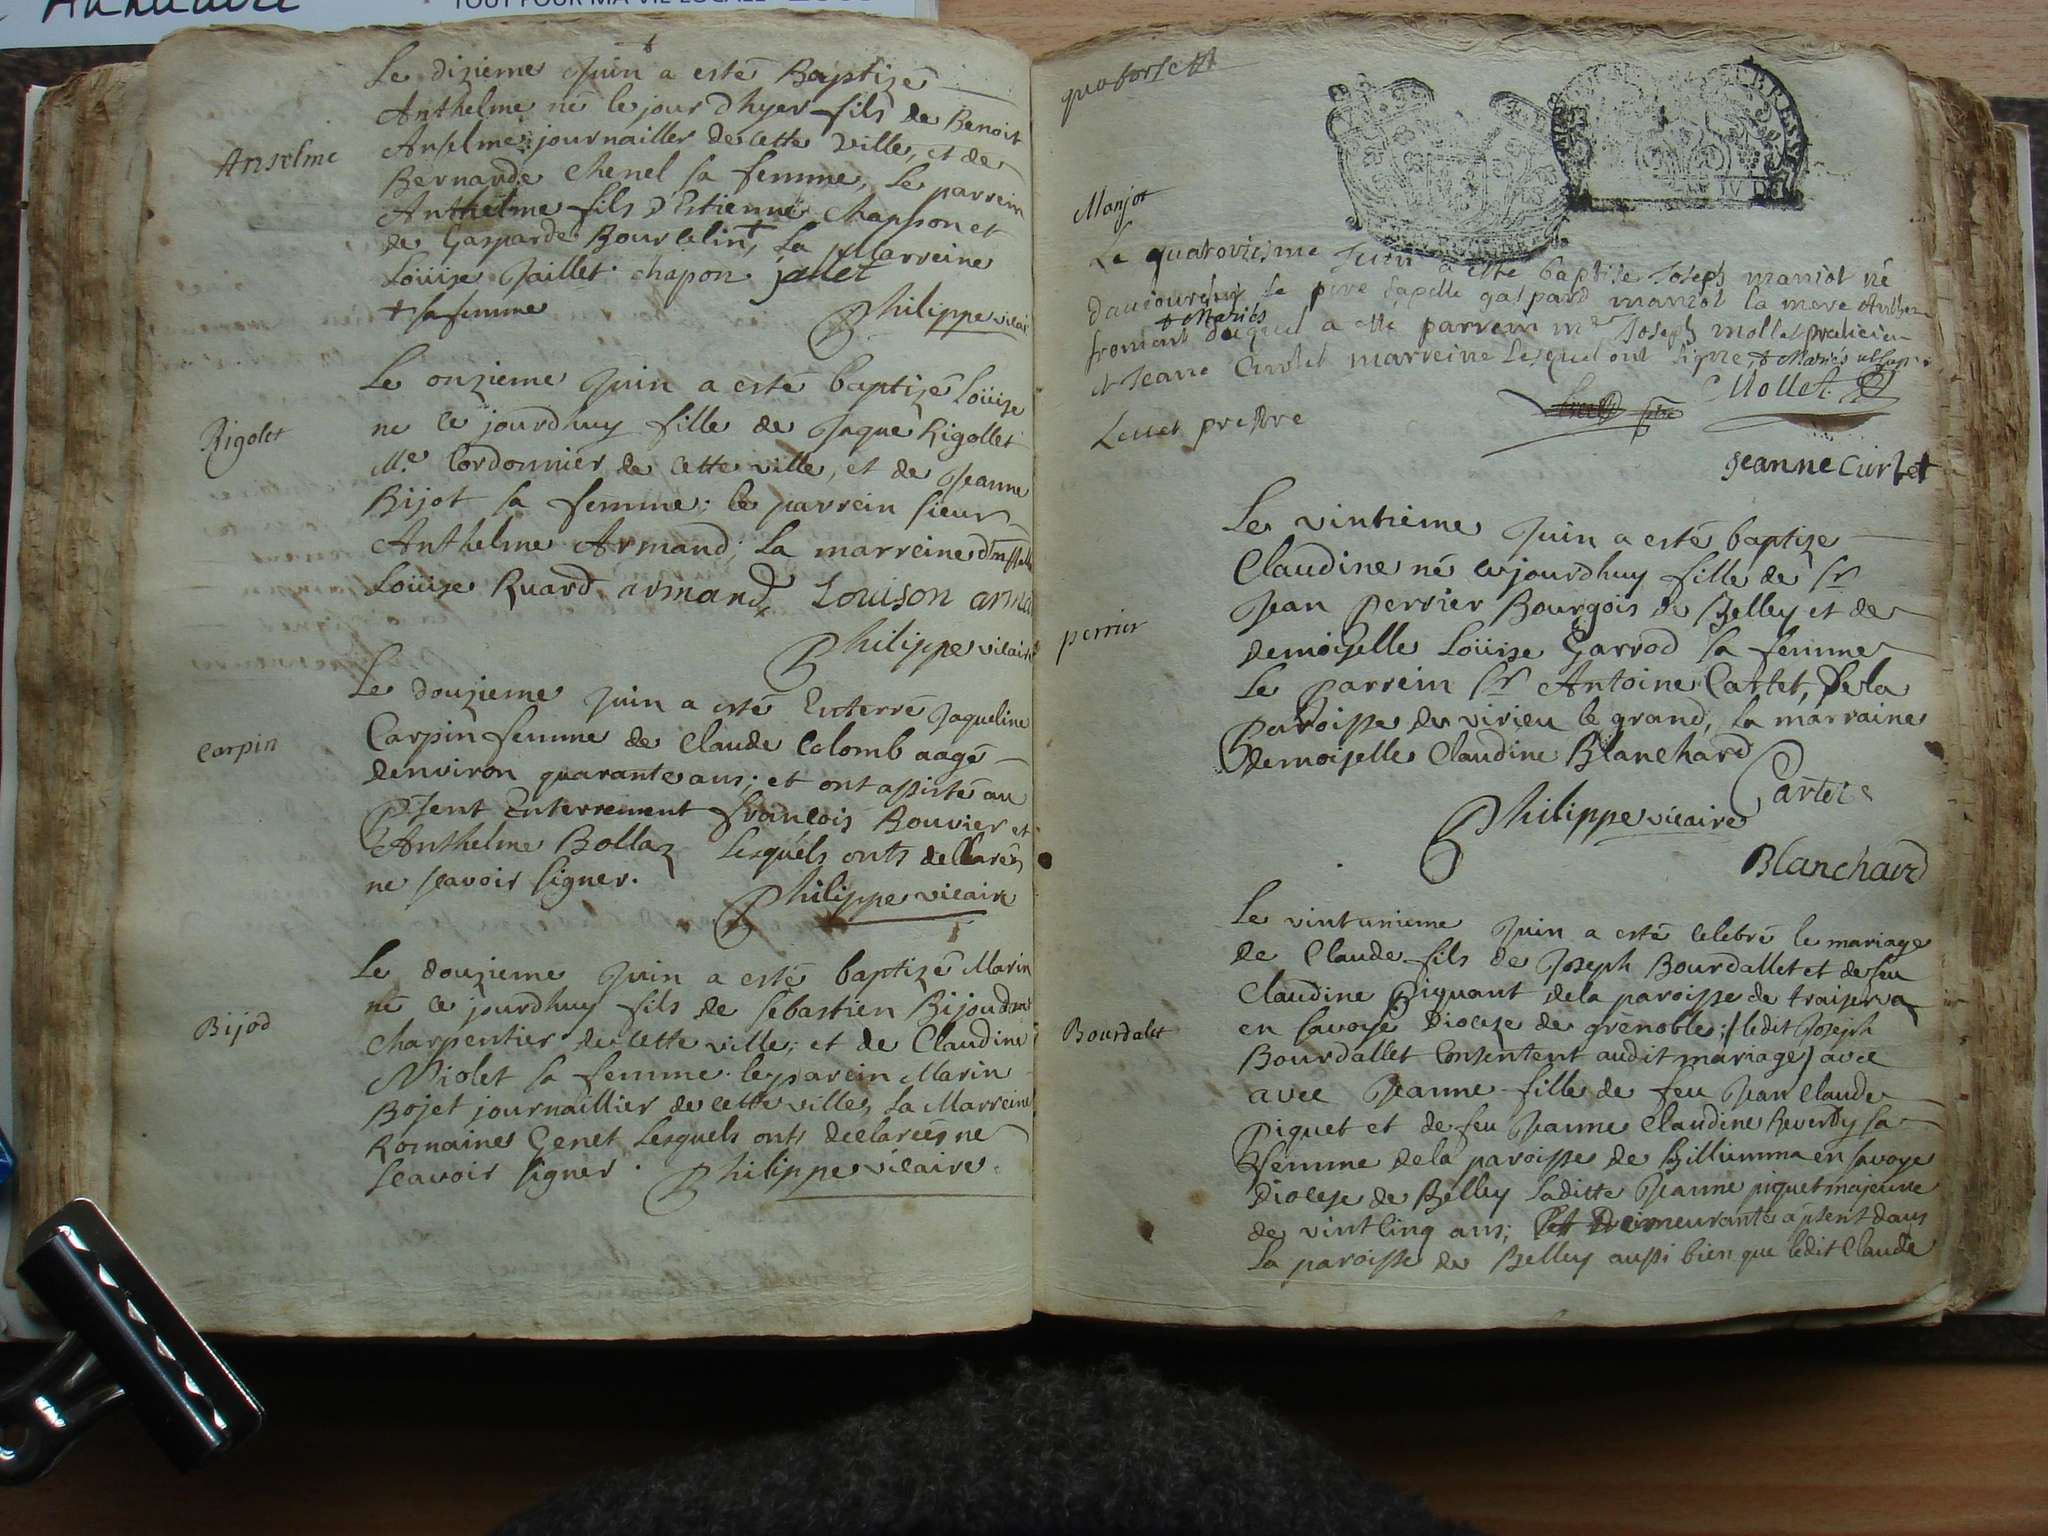 Annuaire
TOUT POUR MA VIE LOCALE
Le dizieme Juin a esté Baptizé
Anthelme né le jour d'hyer fils de Benoit
Anselme journailler de cette ville, et de
Bernarde Chenel sa femme, Le parrein
Anthelme fils d'Estienne Chapson et
de Gasparde Bourcelin + La Marreine
Loüise Jaillet chapon jallet
+ sa femme
Philippe vicai
Anselme
Le onzieme Juin a esté baptizé Loüise
né ce jourdhuy fille de Jaque Rigollet
Me. Cordonnier de cette ville, et de Jeanne
Bijot sa femme; le parrein sieur
Anthelme Armand; La marreine dmsselle
Loüise Ruard armand Louison arma
Philippe vicaire
Rigolet
Le douzieme Juin a esté Enterré Jaqueline
Carpin femme de Claude Colomb aagé
denviron quarante ans; et ont assisté au
psent Enterrement francois Bouvier et
Anthelme Bollaz Lesquels onts declarés
ne scavoir signer.
Philippe vicaire
Carpin
Le douzieme Juin a esté baptizé Marin
né ce jourdhuy fils de sebastien Bijod
charpentier de cette ville; et de Claudine
Violet sa femme. le parein Marin
Bojet journaillier de cette ville, La Marreine
Romaine Genet Lesquels onts declarées ne
scavoir signer. Philippe vicaire.
Bijod
Manjot
Le quatorzieme Juin a esté baptise Joseph manjot né
daujourdhuy le pere sapelle gaspard manjot la mere Anthe
+ Mariés
froment duquel a esté parrein mre Joseph mollet praticien
et Jeane Curtet marreine Lesquel ont signe, + Mariés
Mollet
prestre
Jeanne Curtet
Le vintieme Juin a esté baptize
Claudine né cejourdhuy fille de sr
Jean Perrier Bourgois de Belley et de
demoiselle Loüise Garrod sa femme
Le parrein sr Antoine Cartet, De la
paroisse de virieu le grand, La marraine
demoiselle Claudine Blanchard
Cartet
Philippe vicaire
Blanchard
perrier
Le vintunieme Juin a esté celebré le mariage
de Claude fils de Joseph Bourdallet et de feu
Claudine Piquant de la paroisse de traiserva
en savoye Dioceze de grenoble; (ledit Joseph
Bourdallet Consentent audit mariage) avec
avec Jeanne fille de feu Jean Claude
Piquet et de feu Jeanne Claudine Reverdy sa
femme de la paroisse de Billiumma en savoye
Dioceze de Belley laditte Jeanne piquet majeure
de vintcinq ans; Demeurante a psent dans
La paroisse de Belley aussi bien que ledit Claude
Bourdalet